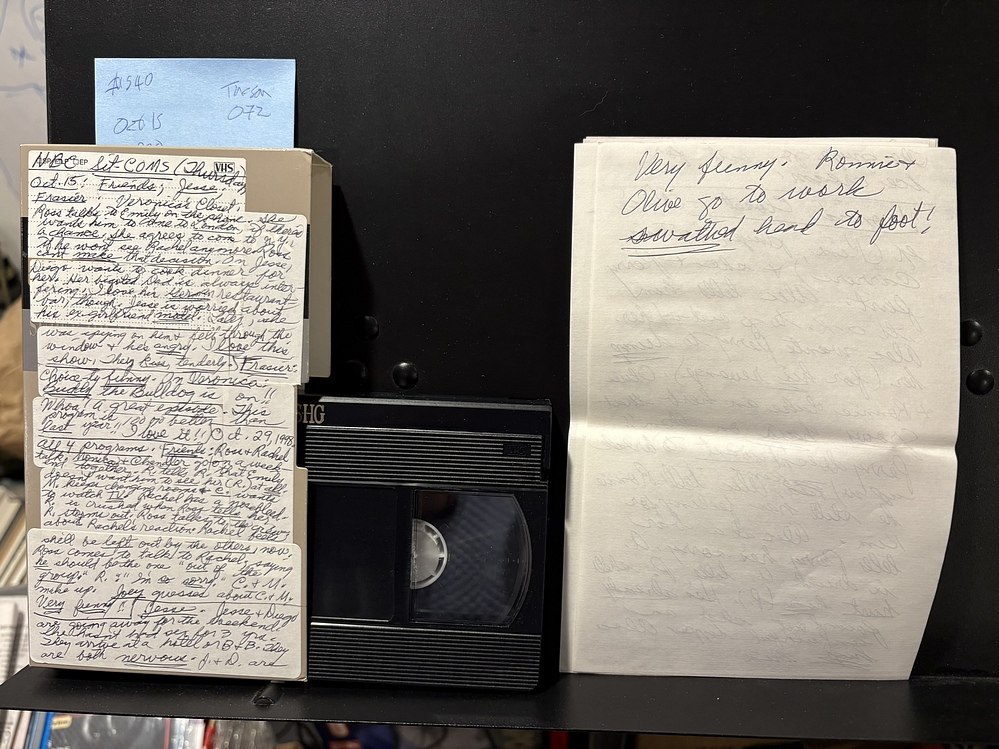 $1540
Oct 15
072
SP/LP/SLP EP
VHS
NBC Sit-COMS (Thursday,
Oct. 15: Friends, Jesse,
Frasier Veronica's Closet!
Ross talks to Emily on the phone. She
wants him to come to London. If there's
a chance, she agrees to come to N.Y.
if he won't see Rachel anymore. Ross
can't make that decision. On Jesse,
Diego wants to cook dinner for
her. Her bigoted Dad is always inter-
fering! I love his German restaurant
bar, though. Jesse is worried about
his ex-girlfriend model "Sally", she
was spying on him & fell through the
window & he's angry. I love this
show. They kiss, tenderly. Frasier:
Choice-ly funny. In Veronica:
Buddy the Bulldog is on"!
Whoa! A great episode. This
program is so so better than
last year"! I love it!! Oct. 29, 1998
all 4 programs. Friends: Ross & Rachel
talk, Monica & Chandler go on a week-
end together. R. tells R. that Emily
doesn't want him to see her (R.) at all
M. keeps changing rooms & C. wants
to watch TV. Rachel has a nosebleed.
R. is crushed when Ross tells her.
R. storms out. Ross talks to the group
about Rachel's reaction. Rachel fears
she'll be left out by the others, now.
Ross comes to talk to Rachel, saying
he should be the one "out of the
group." R.: "I'm so sorry." C. & M.
make up. Joey guesses about C. & M.
Very funny"! Jesse - Jesse & Diego
are going away for the weekend.
She hasn't had sex for 3 yrs.
They arrive at a hotel or B&B. They
are both nervous. J. & D. are
SHG
VHS
Very funny. Ronnie &
Olive go to work
swathed head to foot!